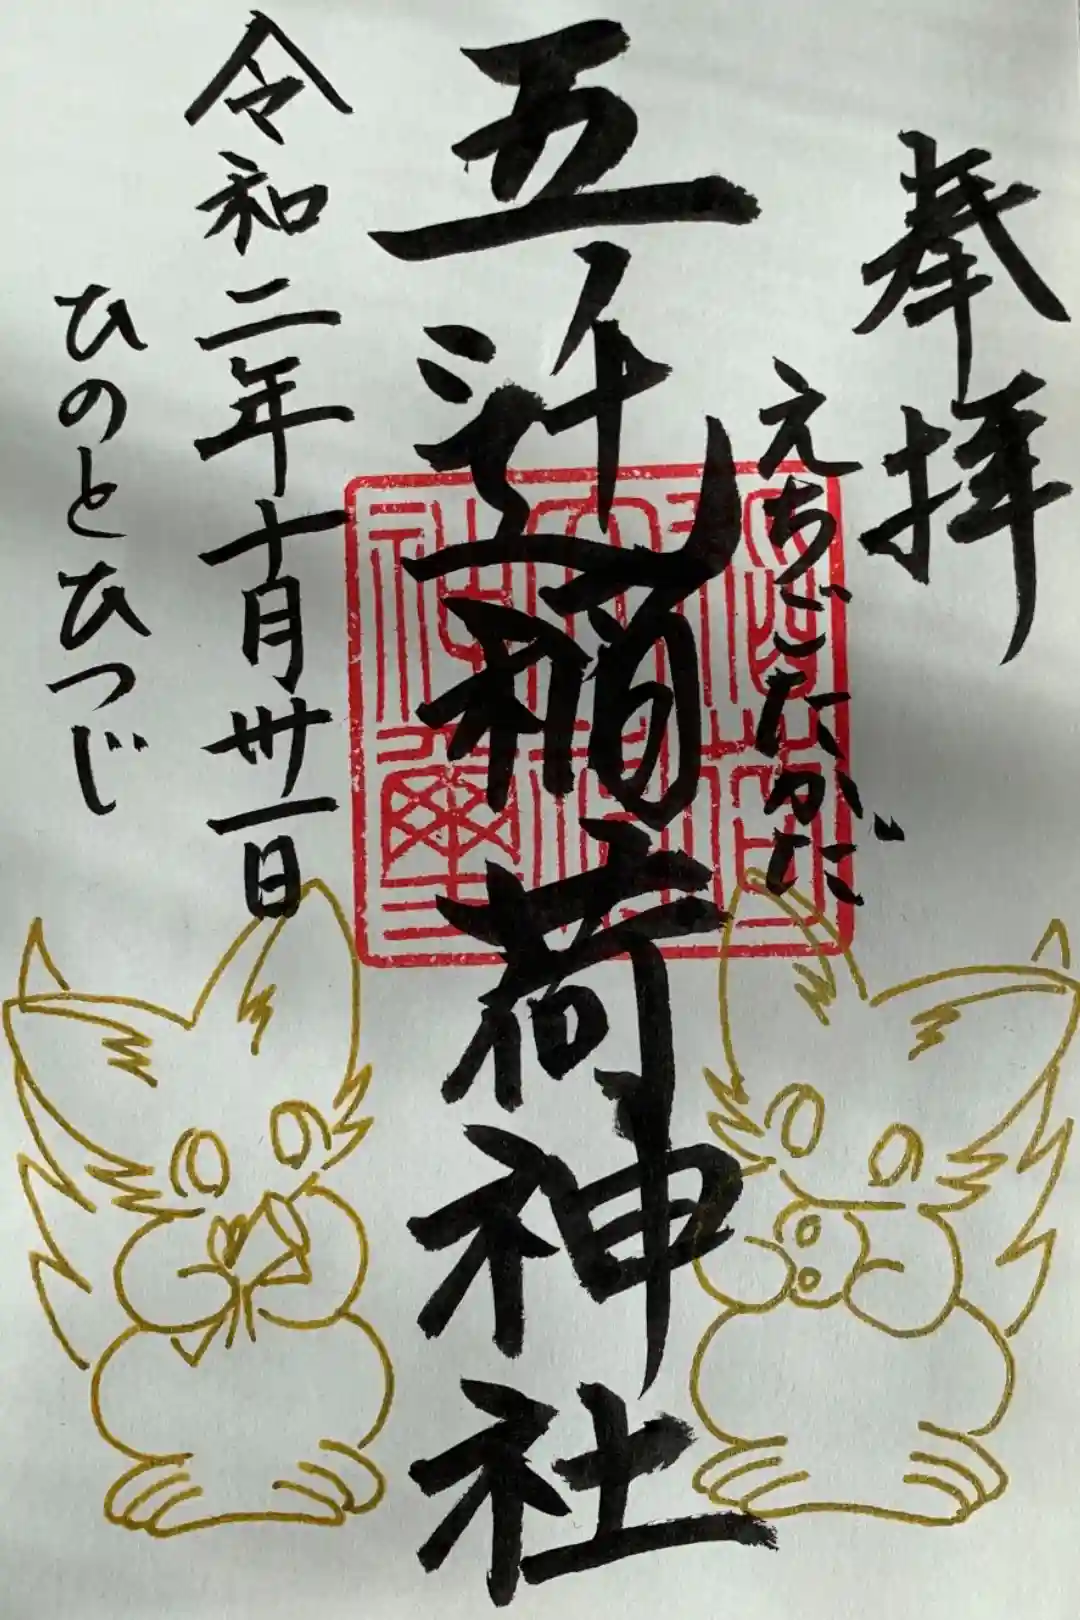 奉拝
えちごたかだ
五辻稲荷神社
令和二年十月卅一日
ひのとひつじ